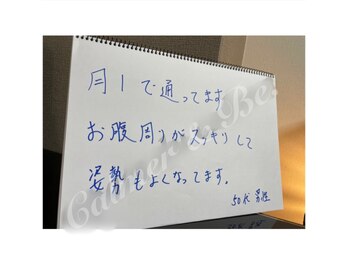 月1で通ってます
お腹周りがスッキリして
姿勢もよくなってます。
50代 男性
Calmer & Be.